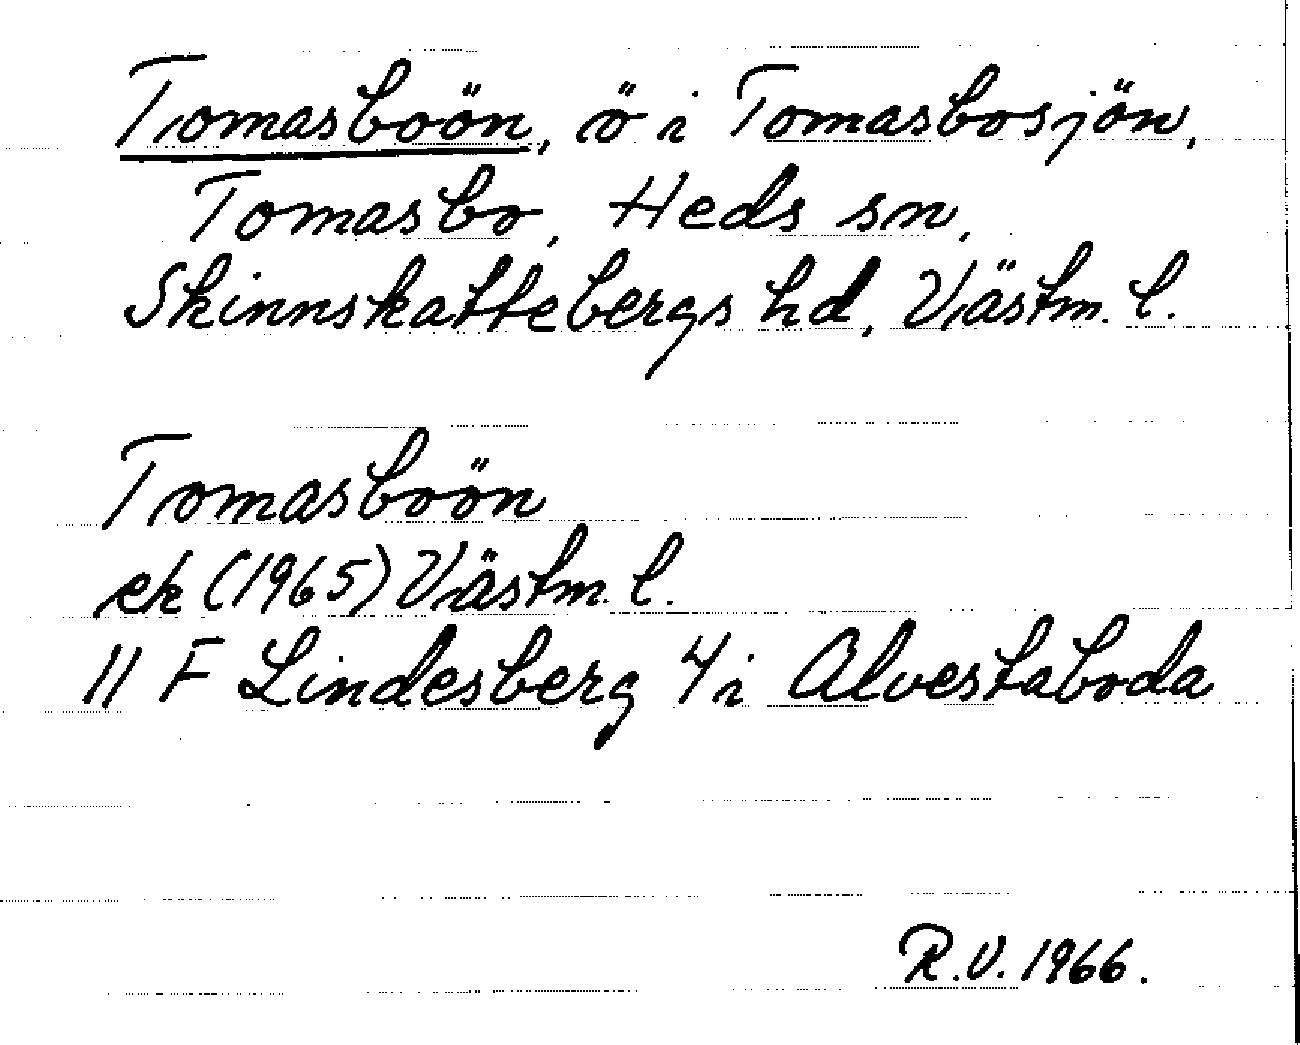 Tomasboön, ö i Tomasbosjön,
Tomasbo, Heds sn,
Skinnskattebergs hd, Västm. l.
Tomasboön
ek (1965) Västm. l.
11 F Lindesberg 4i Alvestaboda
R.V. 1966.